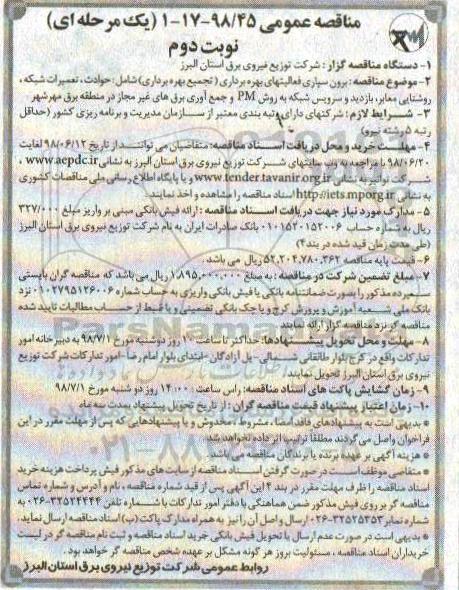 مناقصه عمومی ۹۸/۴۵-۱۷-۱ (یک مرحله ای)
نوبت دوم
۱- دستگاه مناقصه گزار : شرکت توزیع نیروی برق استان البرز
۲- موضوع مناقصه : برون سپاری فعالیتهای بهره برداری ( تجمیع بهره برداری) شامل : حوادث ، تعمیرات شبکه ،
روشنایی معابر، بازدید و سرویس شبکه به روش PM و جمع آوری برق های غیر مجاز در منطقه برق مهرشهر
۳- شرایط لازم : شرکتهای دارای رتبه بندی معتبر از سازمان مدیریت و برنامه ریزی کشور (حداقل
رتبه ۵ رشته نیرو)
۴- مهلت خرید و محل دریافت اسناد مناقصه: متقاضیان می توانند از تاریخ ۹۸/۰۶/۱۲ لغایت
۹۸/۰۶/۲۰ با مراجعه به وب سایتهای شرکت توزیع نیروی برق استان البرز به نشانی www.aepdc.ir ،
شرکت توانیر به نشانی www.tender.tavanir.org.ir و یا پایگاه اطلاع رسانی ملی مناقصات کشوری
به نشانی http://iets.mporg.ir اسناد مناقصه را مشاهده و اخذ نمایند.
۵- مدارک مورد نیاز جهت دریافت اسناد مناقصه : ارائه فیش بانکی مبنی بر واریز مبلغ ۳۲۷/۰۰۰
ریال به شماره حساب ۰۱۰۱۵۲۰۱۵۲۰۰۶ بانک صادرات ایران به نام شرکت توزیع نیروی برق استان البرز
(طی مدت زمان قید شده در بند۴)
۶- قیمت پایه مناقصه ۵۲.۲۰۴.۷۸۰.۳۶۲ ریال می باشد.
۷- مبلغ تضمین شرکت در مناقصه : به مبلغ ۱.۸۹۵.۰۰۰.۰۰۰ ریال می باشد که مناقصه گران بایستی
سپرده مذکور را بصورت ضمانتنامه بانکی یا فیش بانکی واریزی به حساب شماره ۰۱۰۲۷۹۵۱۲۶۰۰۶ نزد
بانک ملی شعبه آموزش و پرورش کرج و یا چک بانکی تضمینی و یا قبض از حساب مطالبات تایید شده
مناقصه گر نزد مناقصه گزار ارائه نمایند
۸- مهلت و محل تحویل پیشنهادها: حداکثر تا ساعت ۱۰ روز دوشنبه مورخ ۹۸/۷/۱ به دبیرخانه امور
تدارکات واقع در کرج بلوار طالقانی شمالی-پل آزادگان -ابتدای بلوار امام رضا -امور تدارکات شرکت توزیع
نیروی برق استان البرز تحویل نمایند.
۹- زمان گشایش پاکت های اسناد مناقصه: راس ساعت ۱۴:۰۰ روز دو شنبه مورخ ۹۸/۷/۱
۱۰- زمان اعتبار پیشنهاد قیمت مناقصه گران : از تاریخ تحویل پیشنهاد بمدت سه ماه
* بدیهی است به پیشنهادهای فاقد امضاء ، مشروط ، مخدوش و یا پیشنهادهایی که پس از مهلت مقرر در این
فراخوان واصل می گردند مطلقا ترتیب اثر داده نخواهد شد.
* هزینه آگهی بر عهده برنده یا برندگان مناقصه می باشد
* متقاضی موظف است در صورت گرفتن اسناد مناقصه از سایت های مذکور فیش پرداخت هزینه خرید
اسناد مناقصه را ظرف مهلت مقرر در بند ۴ این آگهی پس از قید شماره مناقصه ، نام و آدرس و شماره تماس
مناقصه گر بر روی فیش مذکور ضمن هماهنگی با دفتر امور تدارکات با شماره تلفن ۳۲۵۲۴۴۴۴-۰۲۶ به
شماره نمابر ۳۲۵۲۵۳۵۳-۰۲۶ ارسال و اصل آن را نیز به همراه مدارک پاکت (ب) اسناد مناقصه ارسال نماید.
* بدیهی است در صورت عدم ارسال یا تحویل فیش بانکی خرید اسناد مناقصه و ثبت نام مناقصه گر در لیست
خریداران اسناد مناقصه ، مسئولیت بروز هر گونه مشکل بر عهده شخص مناقصه گر خواهد بود.
روابط عمومی شرکت توزیع نیروی برق استان البرز
ParsNamad